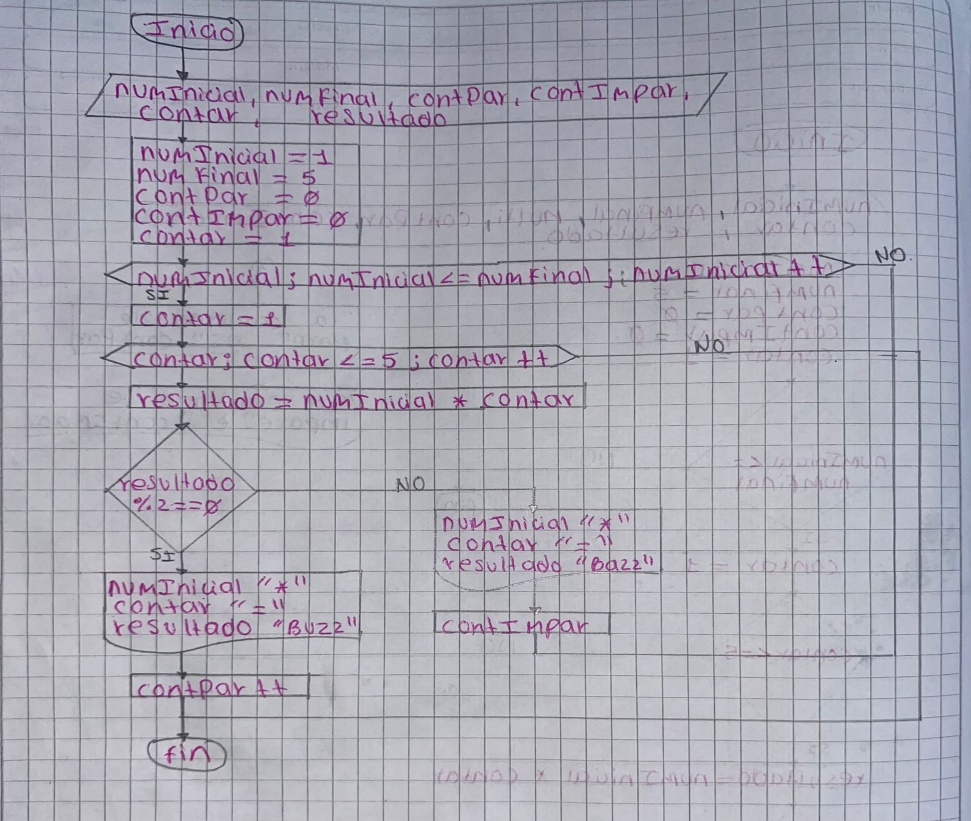 Inicio
numInicial, numFinal, contPar, contImpar,
contar, resultado
numInicial = 1
numFinal = 5
contPar = 0
contImpar = 0
contar = 1
numInicial; numInicial <= numFinal ; numInicial ++
NO
SI
contar = 1
contar; contar <= 5 ; contar ++
NO
resultado = numInicial * contar
resultado
% 2 == 0
NO
SI
numInicial "*"
contar "="
resultado "Bazz"
numInicial "*"
contar "="
resultado "Buzz"
contImpar
contPar ++
fin